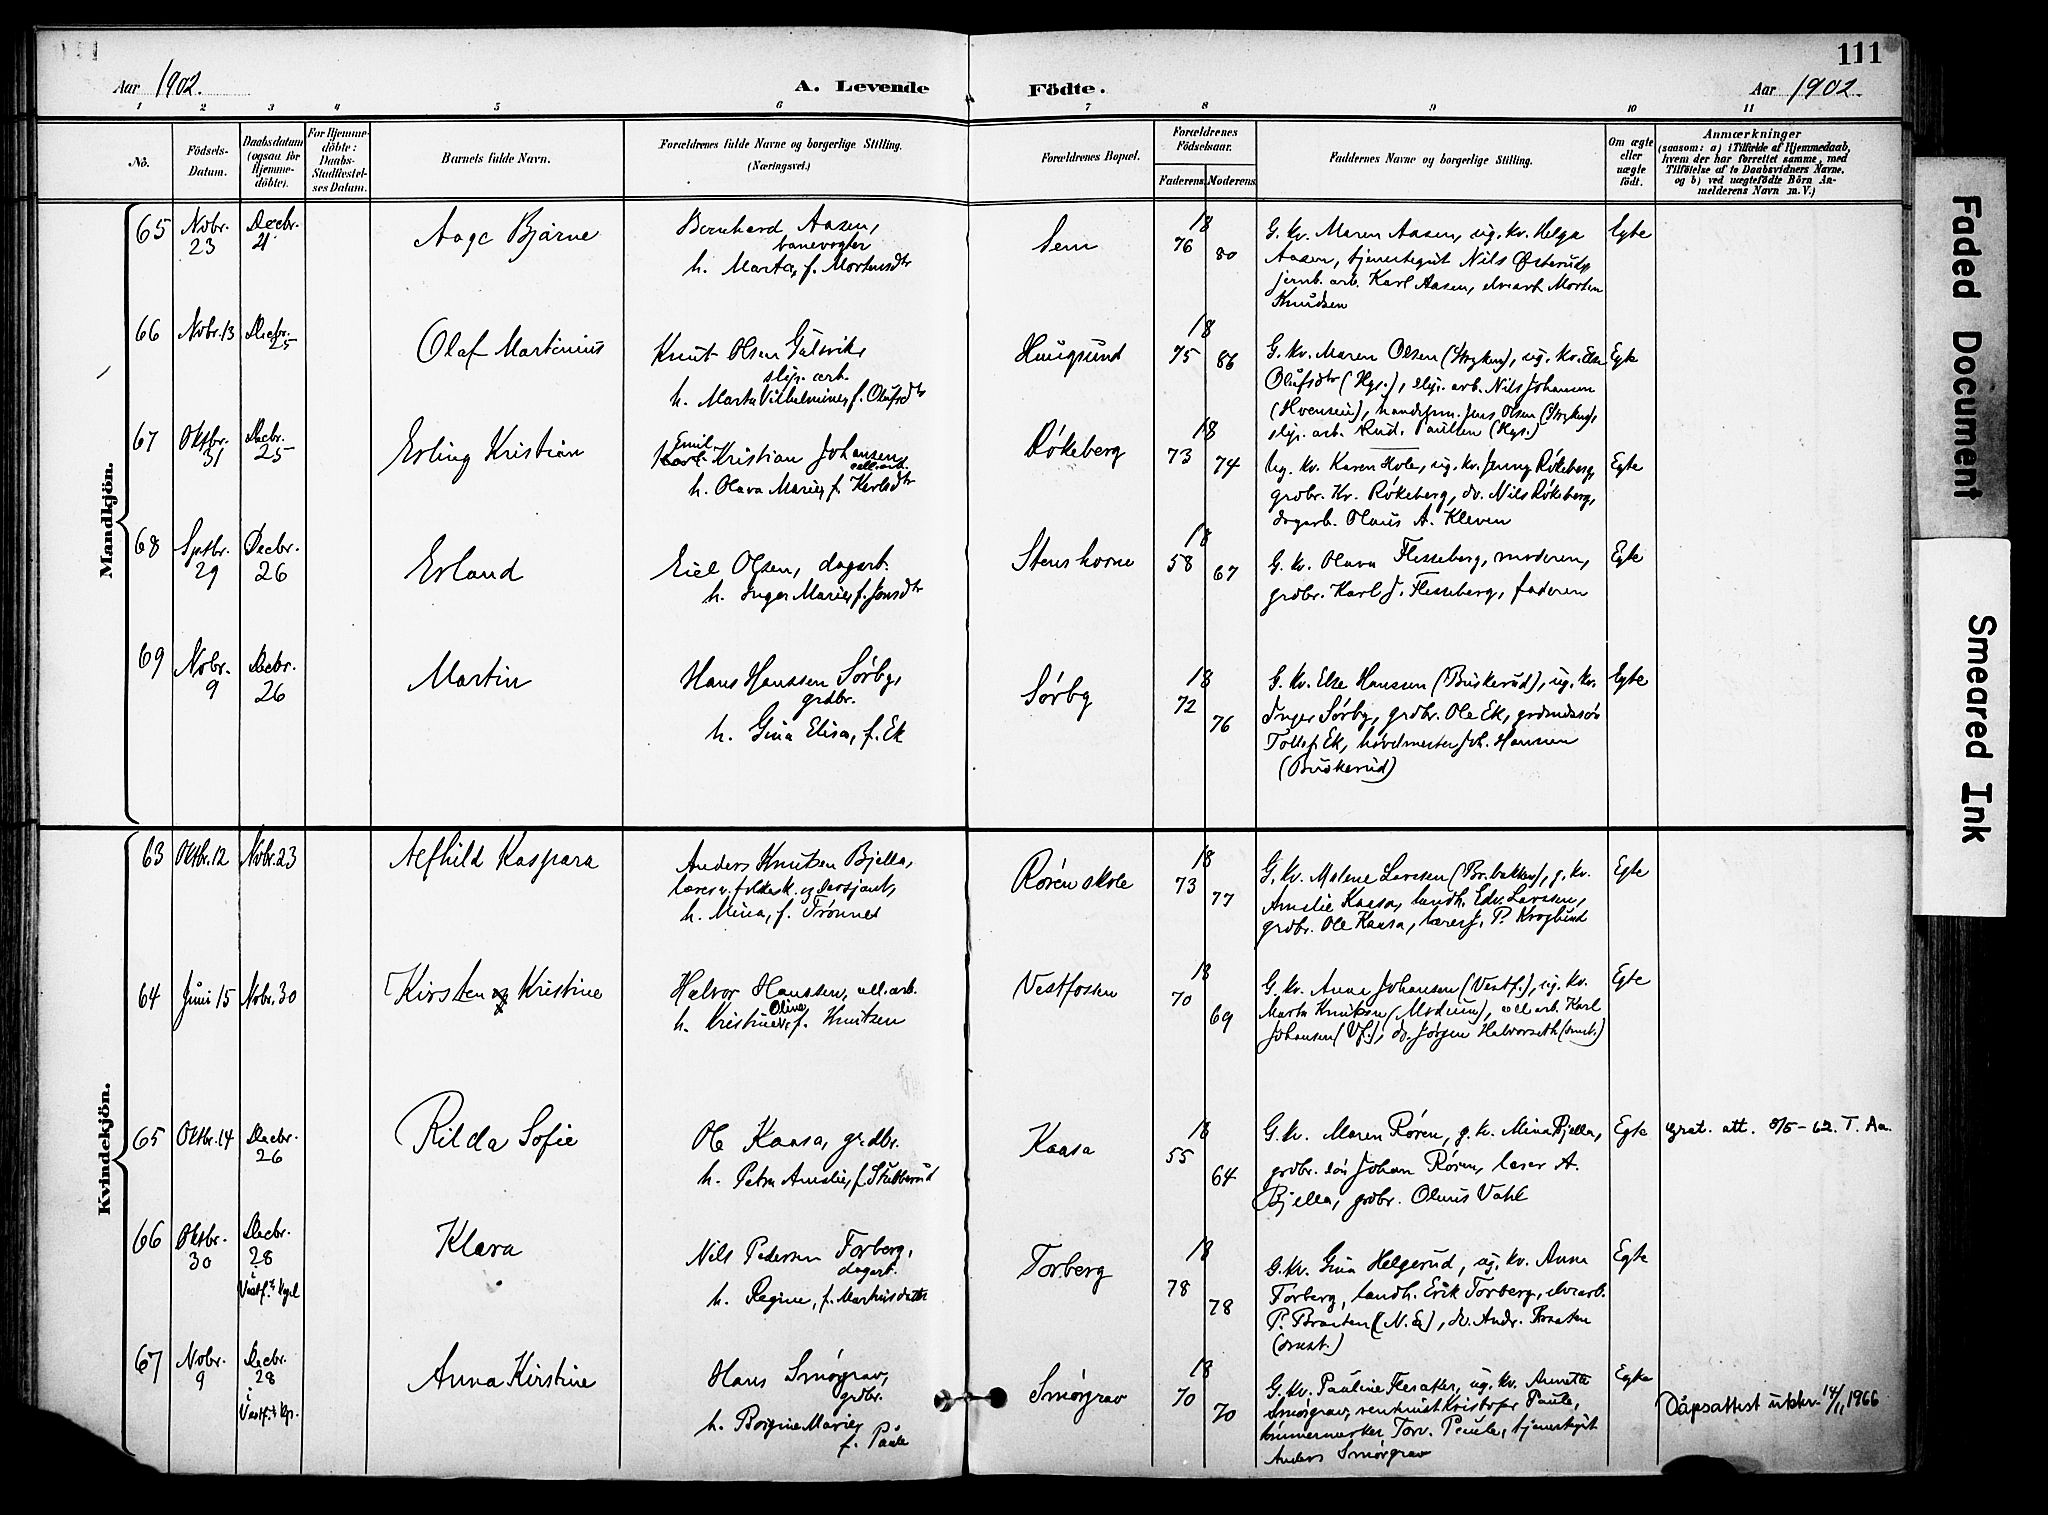 111
Aar 1902.
A. Levende Födte.
Aar 1902.
1 2 3 4 5 6 7 8 9 10 11
No.
Födsels-Datum.
Daabsdatum (ogsaa for Hjemme-döbte).
For Hjemme-döbte: Daabs-Stadfæstel-ses Datum.
Barnets fulde Navn.
Forældrenes fulde Navne og borgerlige Stilling.
(Næringsvei.)
Forældrenes Bopæl.
Forældrenes Födselsaar.
Faderens. Moderens.
Faddernes Navne og borgerlige Stilling.
Om ægte eller uægte født.
Anmærkninger
(saasom: a) i Tilfælde af Hjemmedaab,
hvem der har forrettet samme, med
Tilföielse af to Daabsvidners Navne,
og b) ved uægtefödte Börn An-
melderens Navn m. V.)
Mandkjön.
65 Novbr. 23 Decbr. 21 Aage Bjarne
Bernhard Aasen,
banevogter
h. Marta, f. Mortensdtr
Sem
18 76 80
G. kv. Maren Aasen, ug. kv. Helga
Aasen, tjenestegut Nils Østerud,
jernb. arb. Karl Aasen, elvearb Morten
Knudsen
Egte
66 Novbr. 13 Decbr. 25 Olaf Martinius
Knut Olsen Gulsvik,
slip. arb.
h. Marta Vilhelmine, f. Olufsdtr
Haugsund
18 75 86
G. kv. Maren Olsen (Stryken), ug. kv. Else
Olufsdtr (Hgs.), slip. arb. Nils Johansen
Jens Olsen (Stryken),
slip. arb. Rud. Paulsen (Hgs.)
Egte
67 Oktbr. 31 Decbr. 25 Erling Kristian
Emil
Karl Kristian Johansen
cell.arb.
h. Olava Marie, f. Karlsdtr
Røkeberg
18 73 74
Ug. kv. Karen Hole, ug. kv. Jenny Røkeberg,
grdbr. Kr. Røkeberg, do. Nils Røkeberg,
dagarb. Olaus A. Kleven
Egte
68 Sptbr. 29 Decbr. 26 Erland
Eiel Olsen, dagarb.
h. Inger Marie, f. Jensdtr
Stenshorne
18 58 67
G. kv. Olava Flesseberg, moderen,
grdbr. Karl J. Flesseberg, faderen
Egte
69 Novbr. 9 Decbr. 26 Martin
Hans Hanssen Sørby,
grdbr.
h. Gina Elisa, f. Ek
Sørby
18 72 76
G. kv. Else Hanssen (Buskerud), ug. kv.
Inger Sørby, grdbr. Ole Ek, grdmandssøn
Tollef Ek, hovmester Joh. Hanssen
(Buskerud)
Egte
Kvindekjön.
63 Oktbr. 12 Novbr. 23 Alfhild Kaspara
Anders Knutsen Bjella,
lærer v. folkesk. og sersjant,
h. Mina, f. Trønnes
Røren skole
18 73 77
G. kv. Malene Larssen (Br.bakken), g. kv.
Amalie Kaasa, landh. Edv. Larssen,
grdbr. Ole Kaasa, lærer J. P. Kroglund
Egte
64 Juni 15 Novbr. 30 Kirsten Kristine
Halvor Hanssen, cell.arb.
Oline
h. Kristine, f. Knutsen
Vestfossen
18 70 69
G. kv. Anna Johansen (Vestf.), ug. kv.
Marta Knutsen (Modum), cell arb. Karl
Johansen (Vf.), do. Jørgen Halvorseth (smst.)
Egte
65 Oktbr. 14 Decbr. 26 Rilda Sofie
Ole Kaasa, grdbr.
h. Petra Amalie, f. Stubberud
Kaasa
18 55 64
G. kv. Maren Røren, g. kv. Mina Bjella,
grdbr. søn Johan Røren, lærer A.
Bjella, grdbr. Olaus Vahl
Egte
grat. att. 8/5-62. T. Aa.
66 Oktbr. 30 Decbr. 28 i Vestf. Kpel Klara
Nils Pedersen Torberg,
dagarb.
h. Regine, f. Martinsdatter
Torberg
18 78 78
G. kv. Gina Helgerud, ug. kv. Anna
Torberg, landh. Erik Torberg, elvearb.
P. Braaten (N. E.), do. Andr. Braaten
(smst.)
Egte
67 Novbr. 9 Decbr. 28 i Vestf. Kp. Anna Kirstine
Hans Smørgrav,
grdbr.
h. Borgine Marie,
f. Paule
Smørgrav
18 70 70
G. kv. Pauline Flesaker, ug. kv. Annette
Smørgrav, rentenist Kristofer Paule,
tømmermerker Torv. Paule, tjenestegut
Anders Smørgrav
Egte
Dåpsattest utskr. 14/11 1966
Faded Document
Smeared Ink